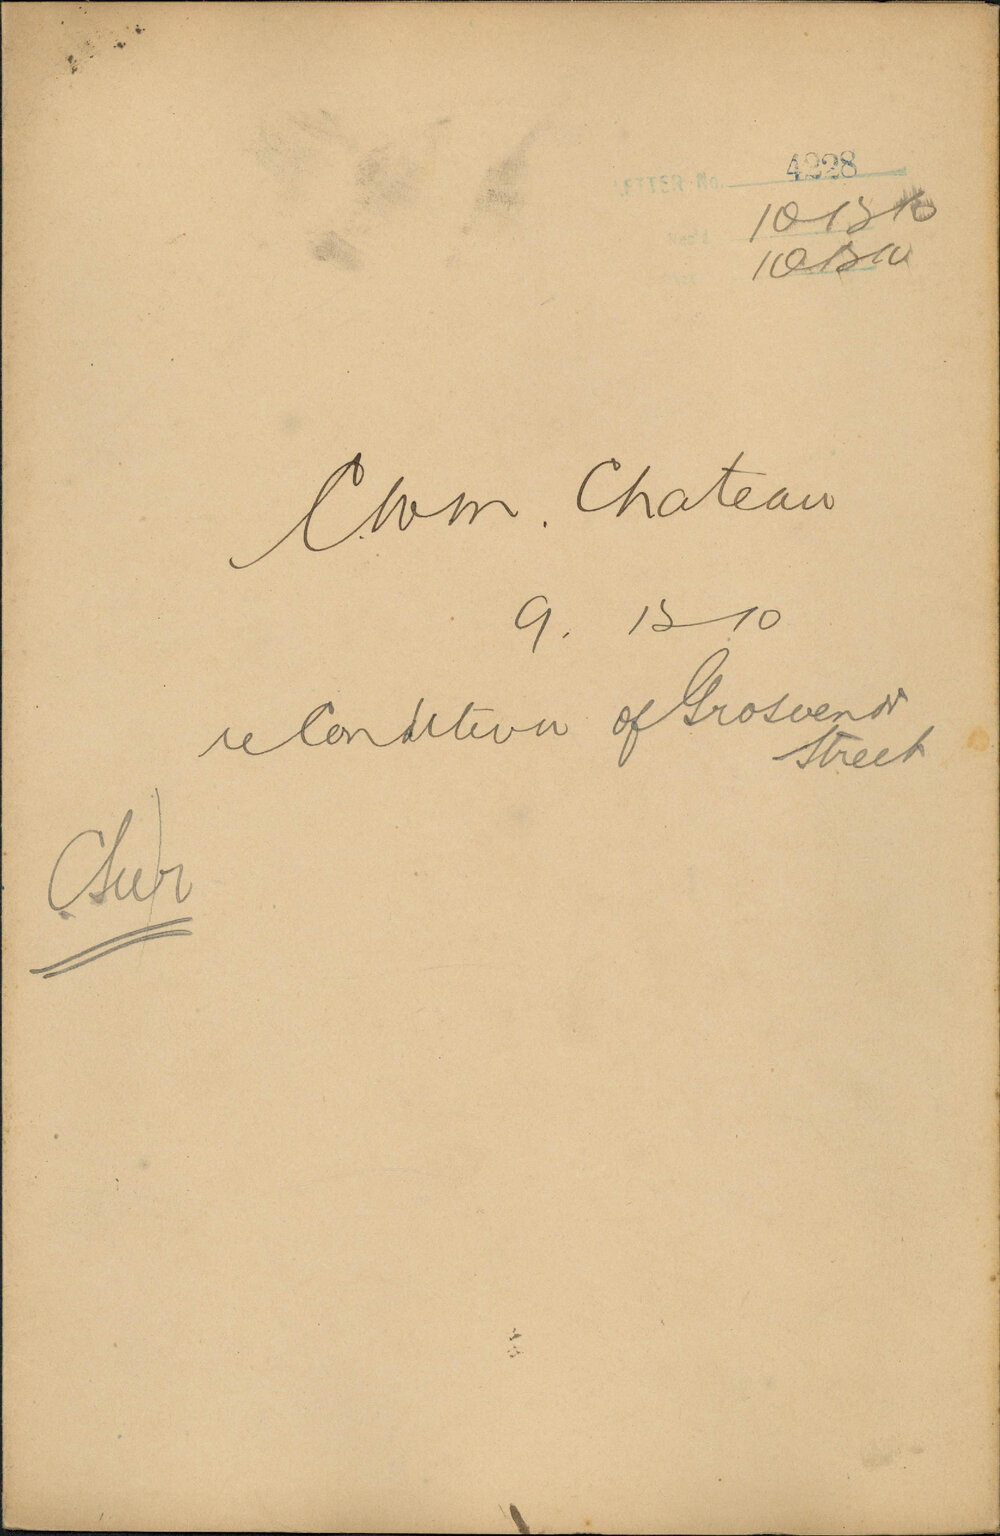 LETTER No. 4228
10 12 10
Rec'd
10 12 10
C.W.M. Chateau
9. 12 10
re Condition of Grosvenor
Street